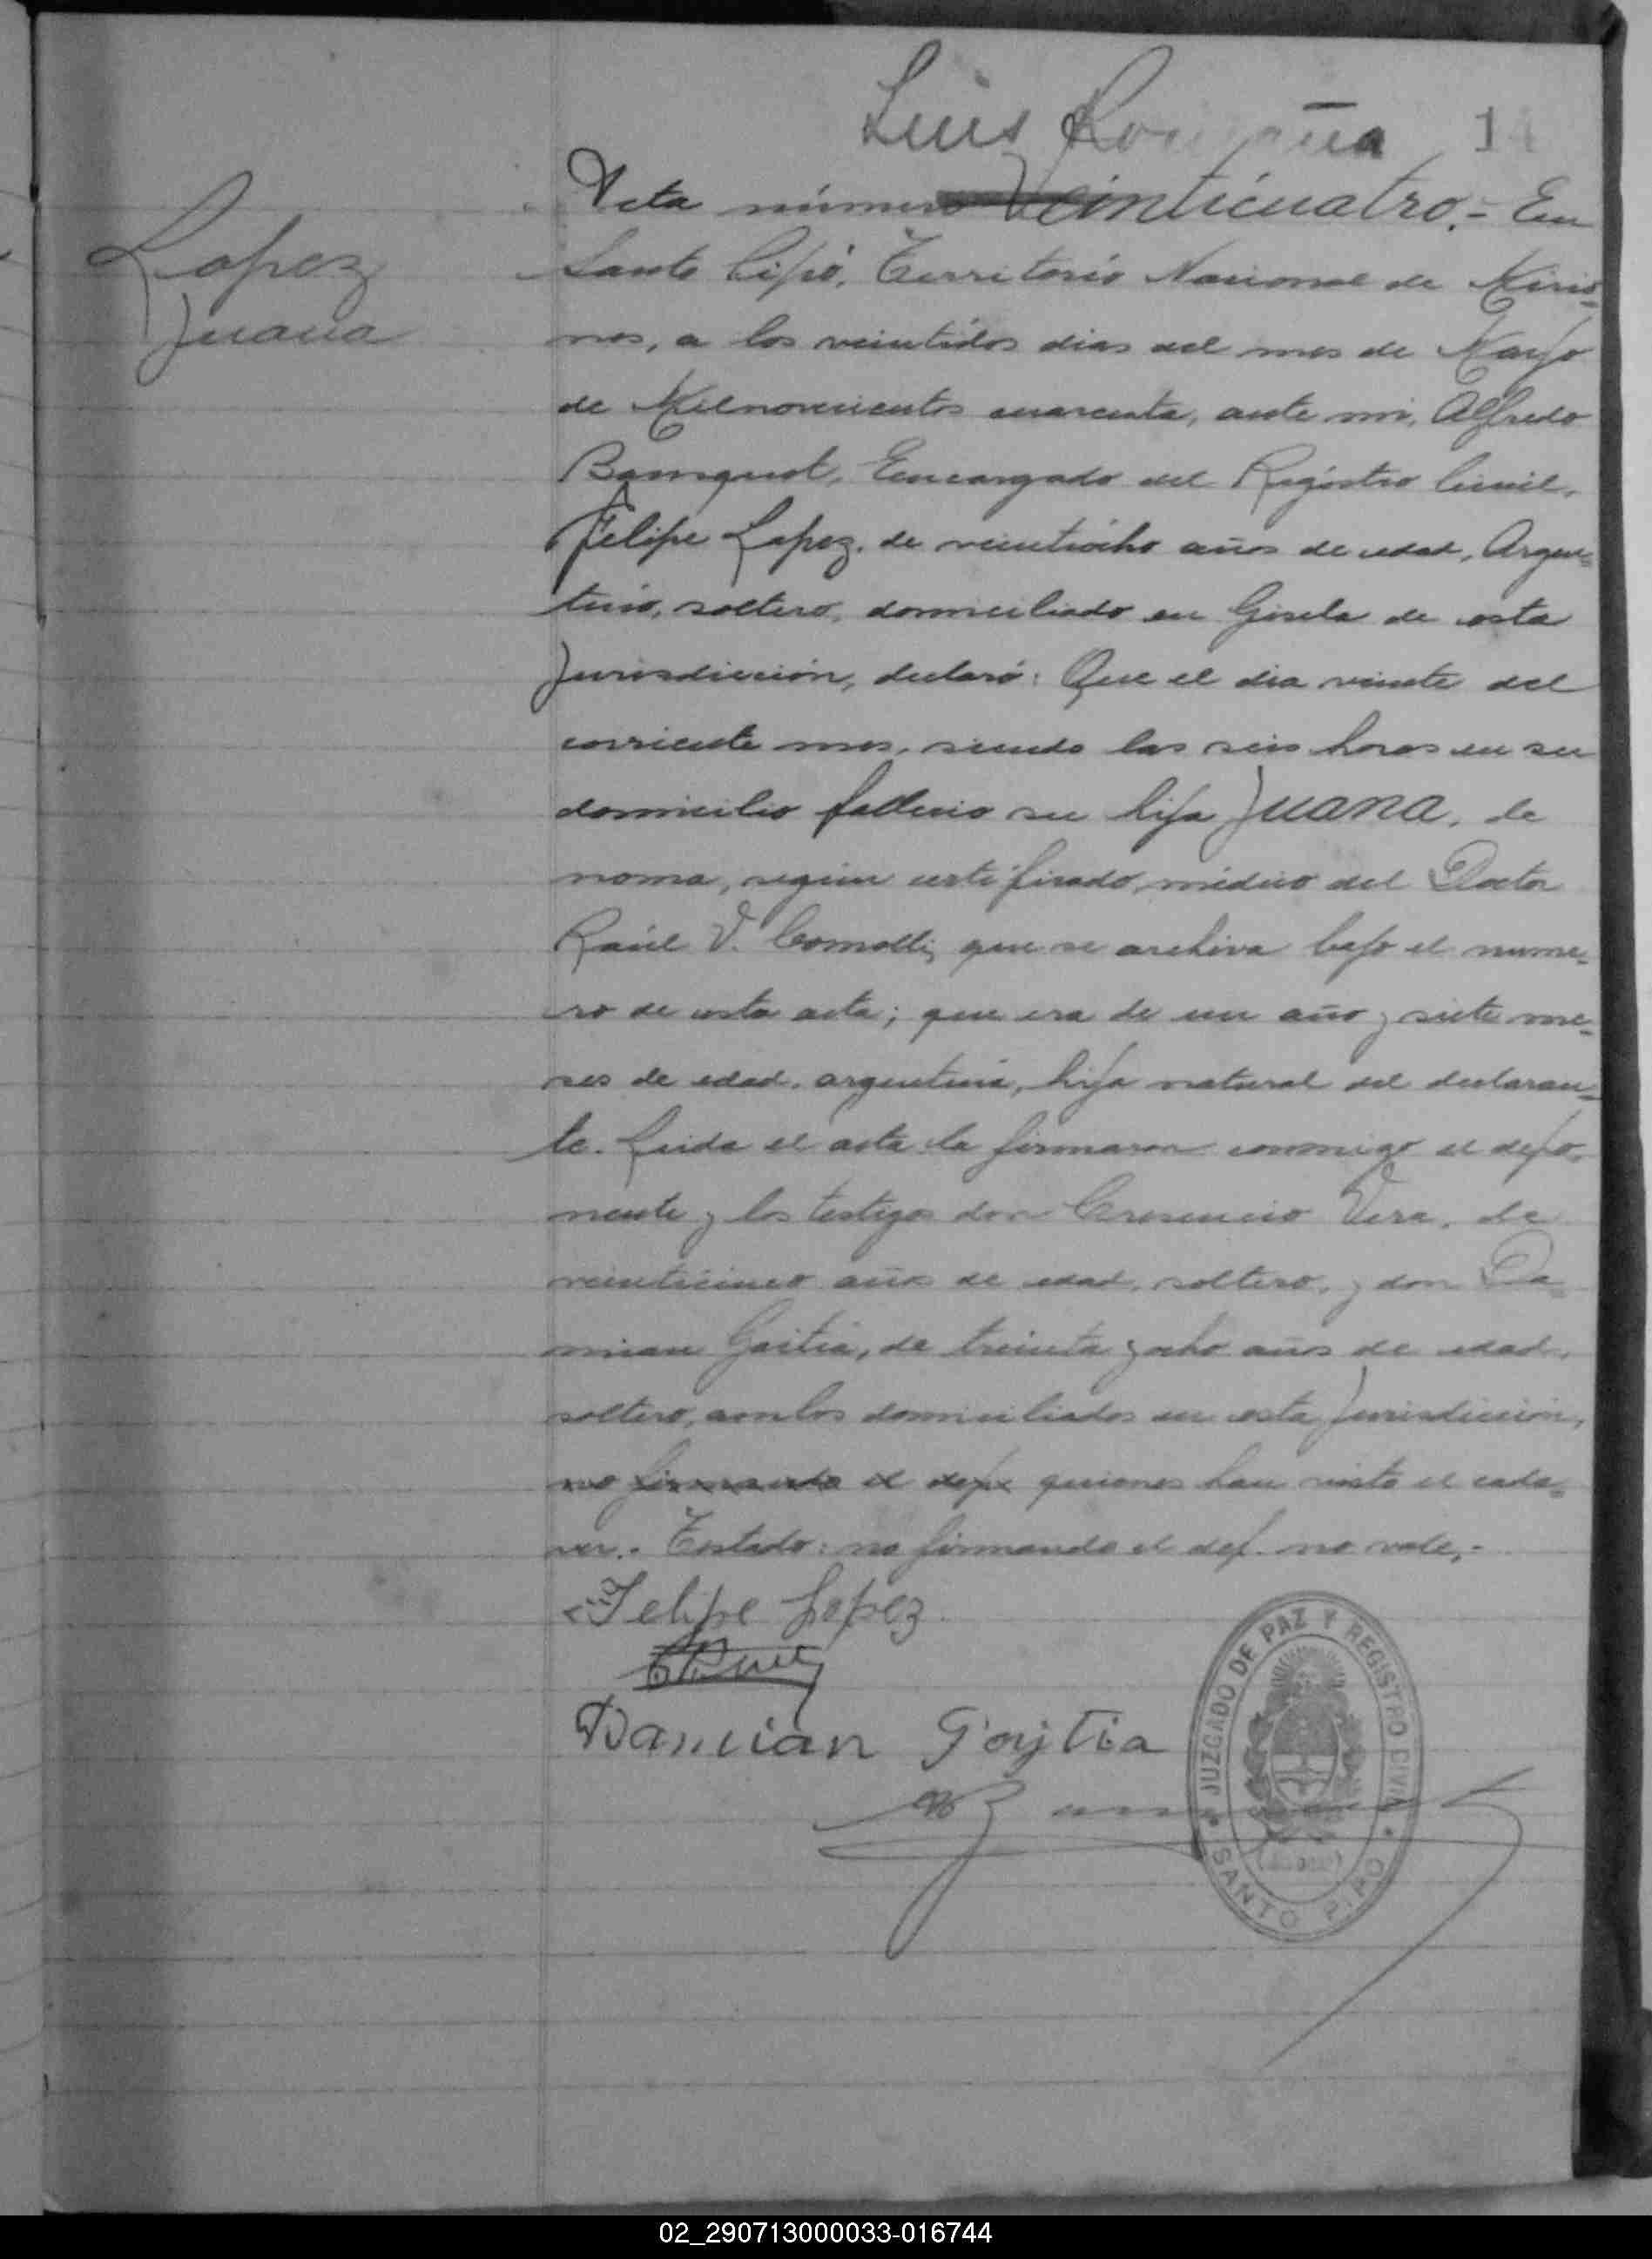 Luis
14
Lopez
Juana
Acta número Veinticuatro.- En
Santo Pipó, Territorio Nacional de Misio=
nes, a los veintidos dias del mes de Mayo
de Milnovecientos cuarenta, ante mi, Alfredo
Encargado del Registro Civil,
Felipe Lopez, de veintiocho años de edad, Argen=
tino, soltero, domiciliado en Gisela de esta
Jurisdicción, declaró: Que el dia veinte del
corriente mes, siendo las seis horas en su
domicilio fallecio su hija Juana, de
noma, segun certificado médico del Doctor
Raúl V. Comolli, que se archiva bajo el nume=
ro de esta acta; que era de un año y siete me=
ses de edad, argentina, hija natural del declaran=
te. Leida el acta la firmaron conmigo el depo=
nente y los testigos don Cresencio Vera, de
veinticinco años de edad, soltero, y don Da=
mian Goitia, de treinta y ocho años de edad,
soltero, ambos domiciliados en esta Jurisdicción,
no firmando el dep quienes han visto el cada=
ver.- Testado: no firmando el dep. no vale,-
Felipe Lopez
Damian Goytia
JUZGADO DE PAZ Y REGISTRO CIVIL
SANTO PIPO
02_290713000033-016744